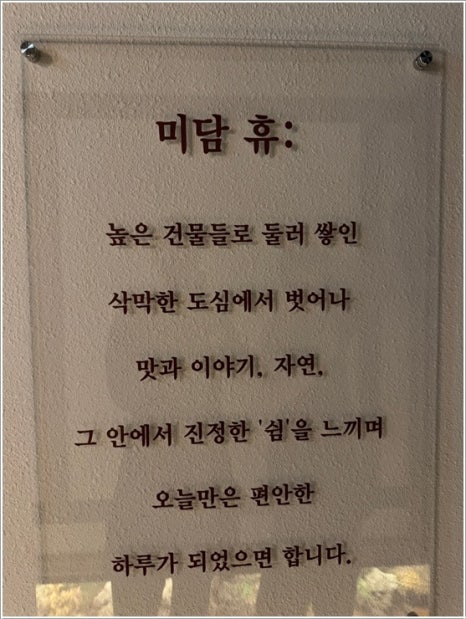 미담 휴:
높은 건물들로 둘러 쌓인
삭막한 도심에서 벗어나
맛과 이야기, 자연,
그 안에서 진정한 '쉼'을 느끼며
오늘만은 편안한
하루가 되었으면 합니다.